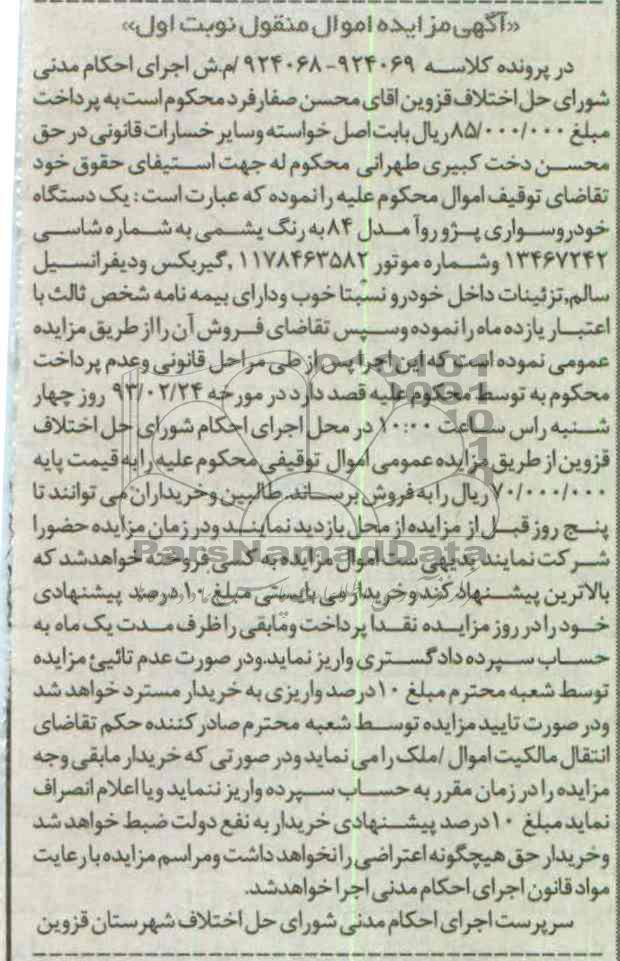 «آگهی مزایده اموال منقول نوبت اول»
در پرونده کلاسه ۹۲۴۰۶۹-۹۲۴۰۶۸ /م.ش اجرای احکام مدنی
شورای حل اختلاف قزوین اقای محسن صفار فرد محکوم است به پرداخت
مبلغ ۸۵/۰۰۰/۰۰۰ ریال بابت اصل خواسته وسایر خسارات قانونی در حق
محسن دخت کبیری طهرانی محکوم له جهت استیفای حقوق خود
تقاضای توقیف اموال محکوم علیه را نموده که عبارت است: یک دستگاه
خودروسواری پژو روآ مدل ۸۴ به رنگ یشمی به شماره شاسی
۱۳۴۶۷۲۴۲ وشماره موتور ۱۱۷۸۴۶۳۵۸۲ ,گیربکس ودیفرانسیل
سالم,تزئینات داخل خودرو نسبتا خوب ودارای بیمه نامه شخص ثالث با
اعتبار یازده ماه را نموده وسپس تقاضای فروش آن را از طریق مزایده
عمومی نموده است که این اجرا پس از طی مراحل قانونی وعدم پرداخت
محکوم به توسط محکوم علیه قصد دارد در مورخه ۹۳/۰۲/۲۴ روز چهار
شنبه راس ساعت ۱۰:۰۰ در محل اجرای احکام شورای حل اختلاف
قزوین از طریق مزایده عمومی اموال توقیفی محکوم علیه را به قیمت پایه
۷۰/۰۰۰/۰۰۰ ریال را به فروش برساند. طالبین وخریداران می توانند تا
پنج روز قبل از مزایده از محل بازدید نمایند ودر زمان مزایده حضورا
شرکت نمایند بدیهی ست اموال مزایده به کسی فروخته خواهد شد که
بالاترین پیشنهاد کند وخریدار می بایستی مبلغ ۱۰ درصد پیشنهادی
خود را در روز مزایده نقدا پرداخت ومابقی را ظرف مدت یک ماه به
حساب سپرده دادگستری واریز نماید.ودر صورت عدم تائیئ مزایده
توسط شعبه محترم مبلغ ۱۰ درصد واریزی به خریدار مسترد خواهد شد
ودر صورت تایید مزایده توسط شعبه محترم صادر کننده حکم تقاضای
انتقال مالکیت اموال /ملک را می نماید ودر صورتی که خریدار مابقی وجه
مزایده را در زمان مقرر به حساب سپرده واریز ننماید ویا اعلام انصراف
نماید مبلغ ۱۰ درصد پیشنهادی خریدار به نفع دولت ضبط خواهد شد
وخریدار حق هیچگونه اعتراضی را نخواهد داشت ومراسم مزایده با رعایت
مواد قانون اجرای احکام مدنی اجرا خواهد شد.
سرپرست اجرای احکام مدنی شورای حل اختلاف شهرستان قزوین
ParsNamadData